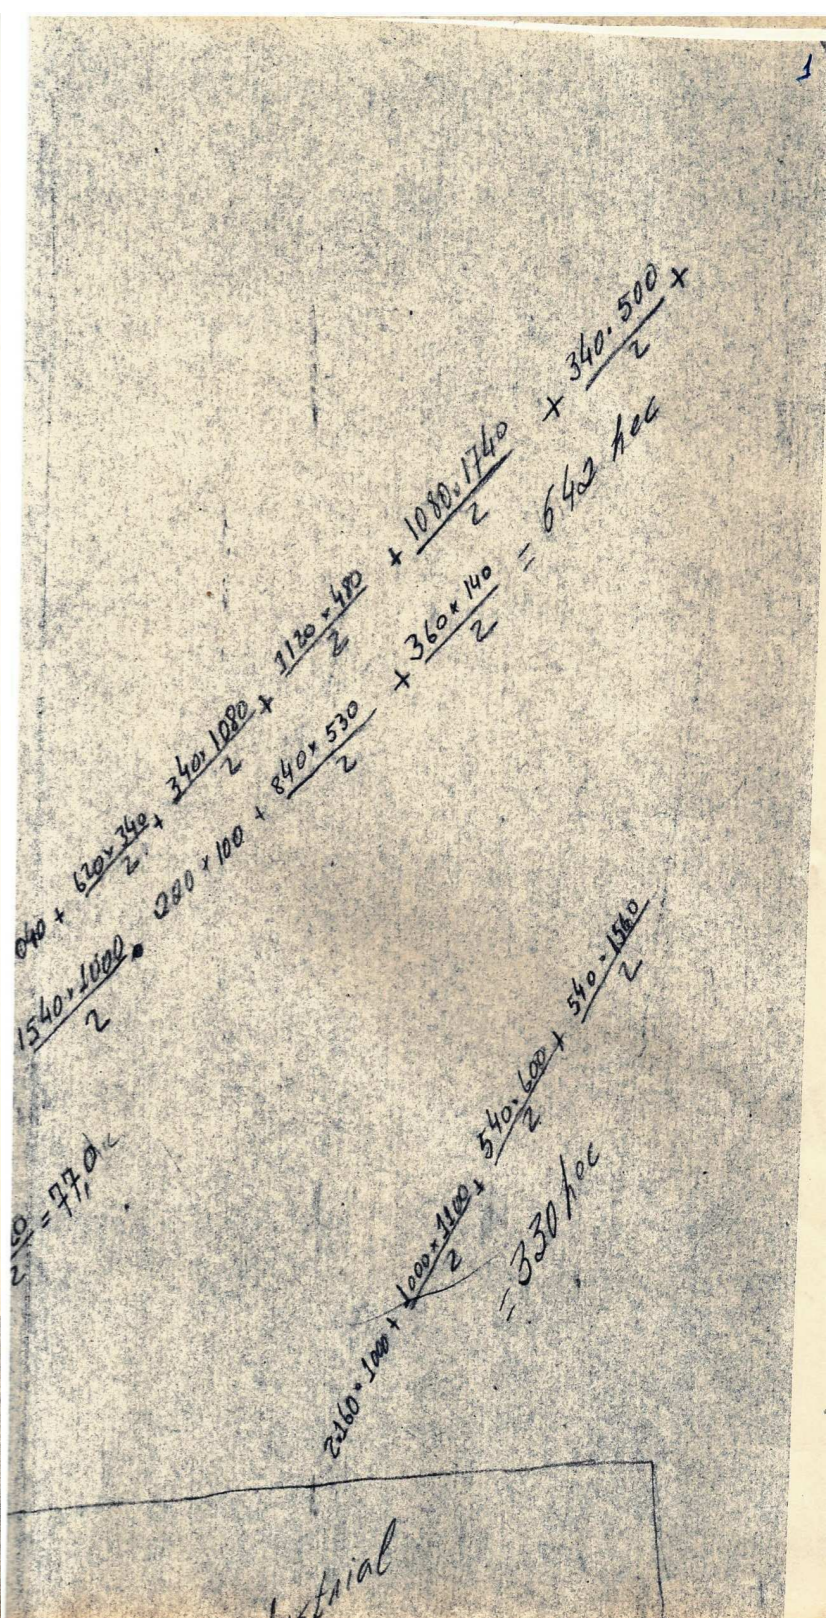 1
040 + 620 x 340 / 2 + 340 x 1080 / 2 + 1120 x 480 / 2 + 1080 x 1740 / 2 x 340 . 500 / 2 x
1540 x 1000 / 2 . 200 x 100 + 840 x 530 / 2 + 360 x 140 / 2 = 642 hec
20 / 2 = 77,0
2160 x 1000 + 1000 x 1100 / 2 + 540 x 600 / 2 + 540 - 1560 / 2
= 330 hec
strial